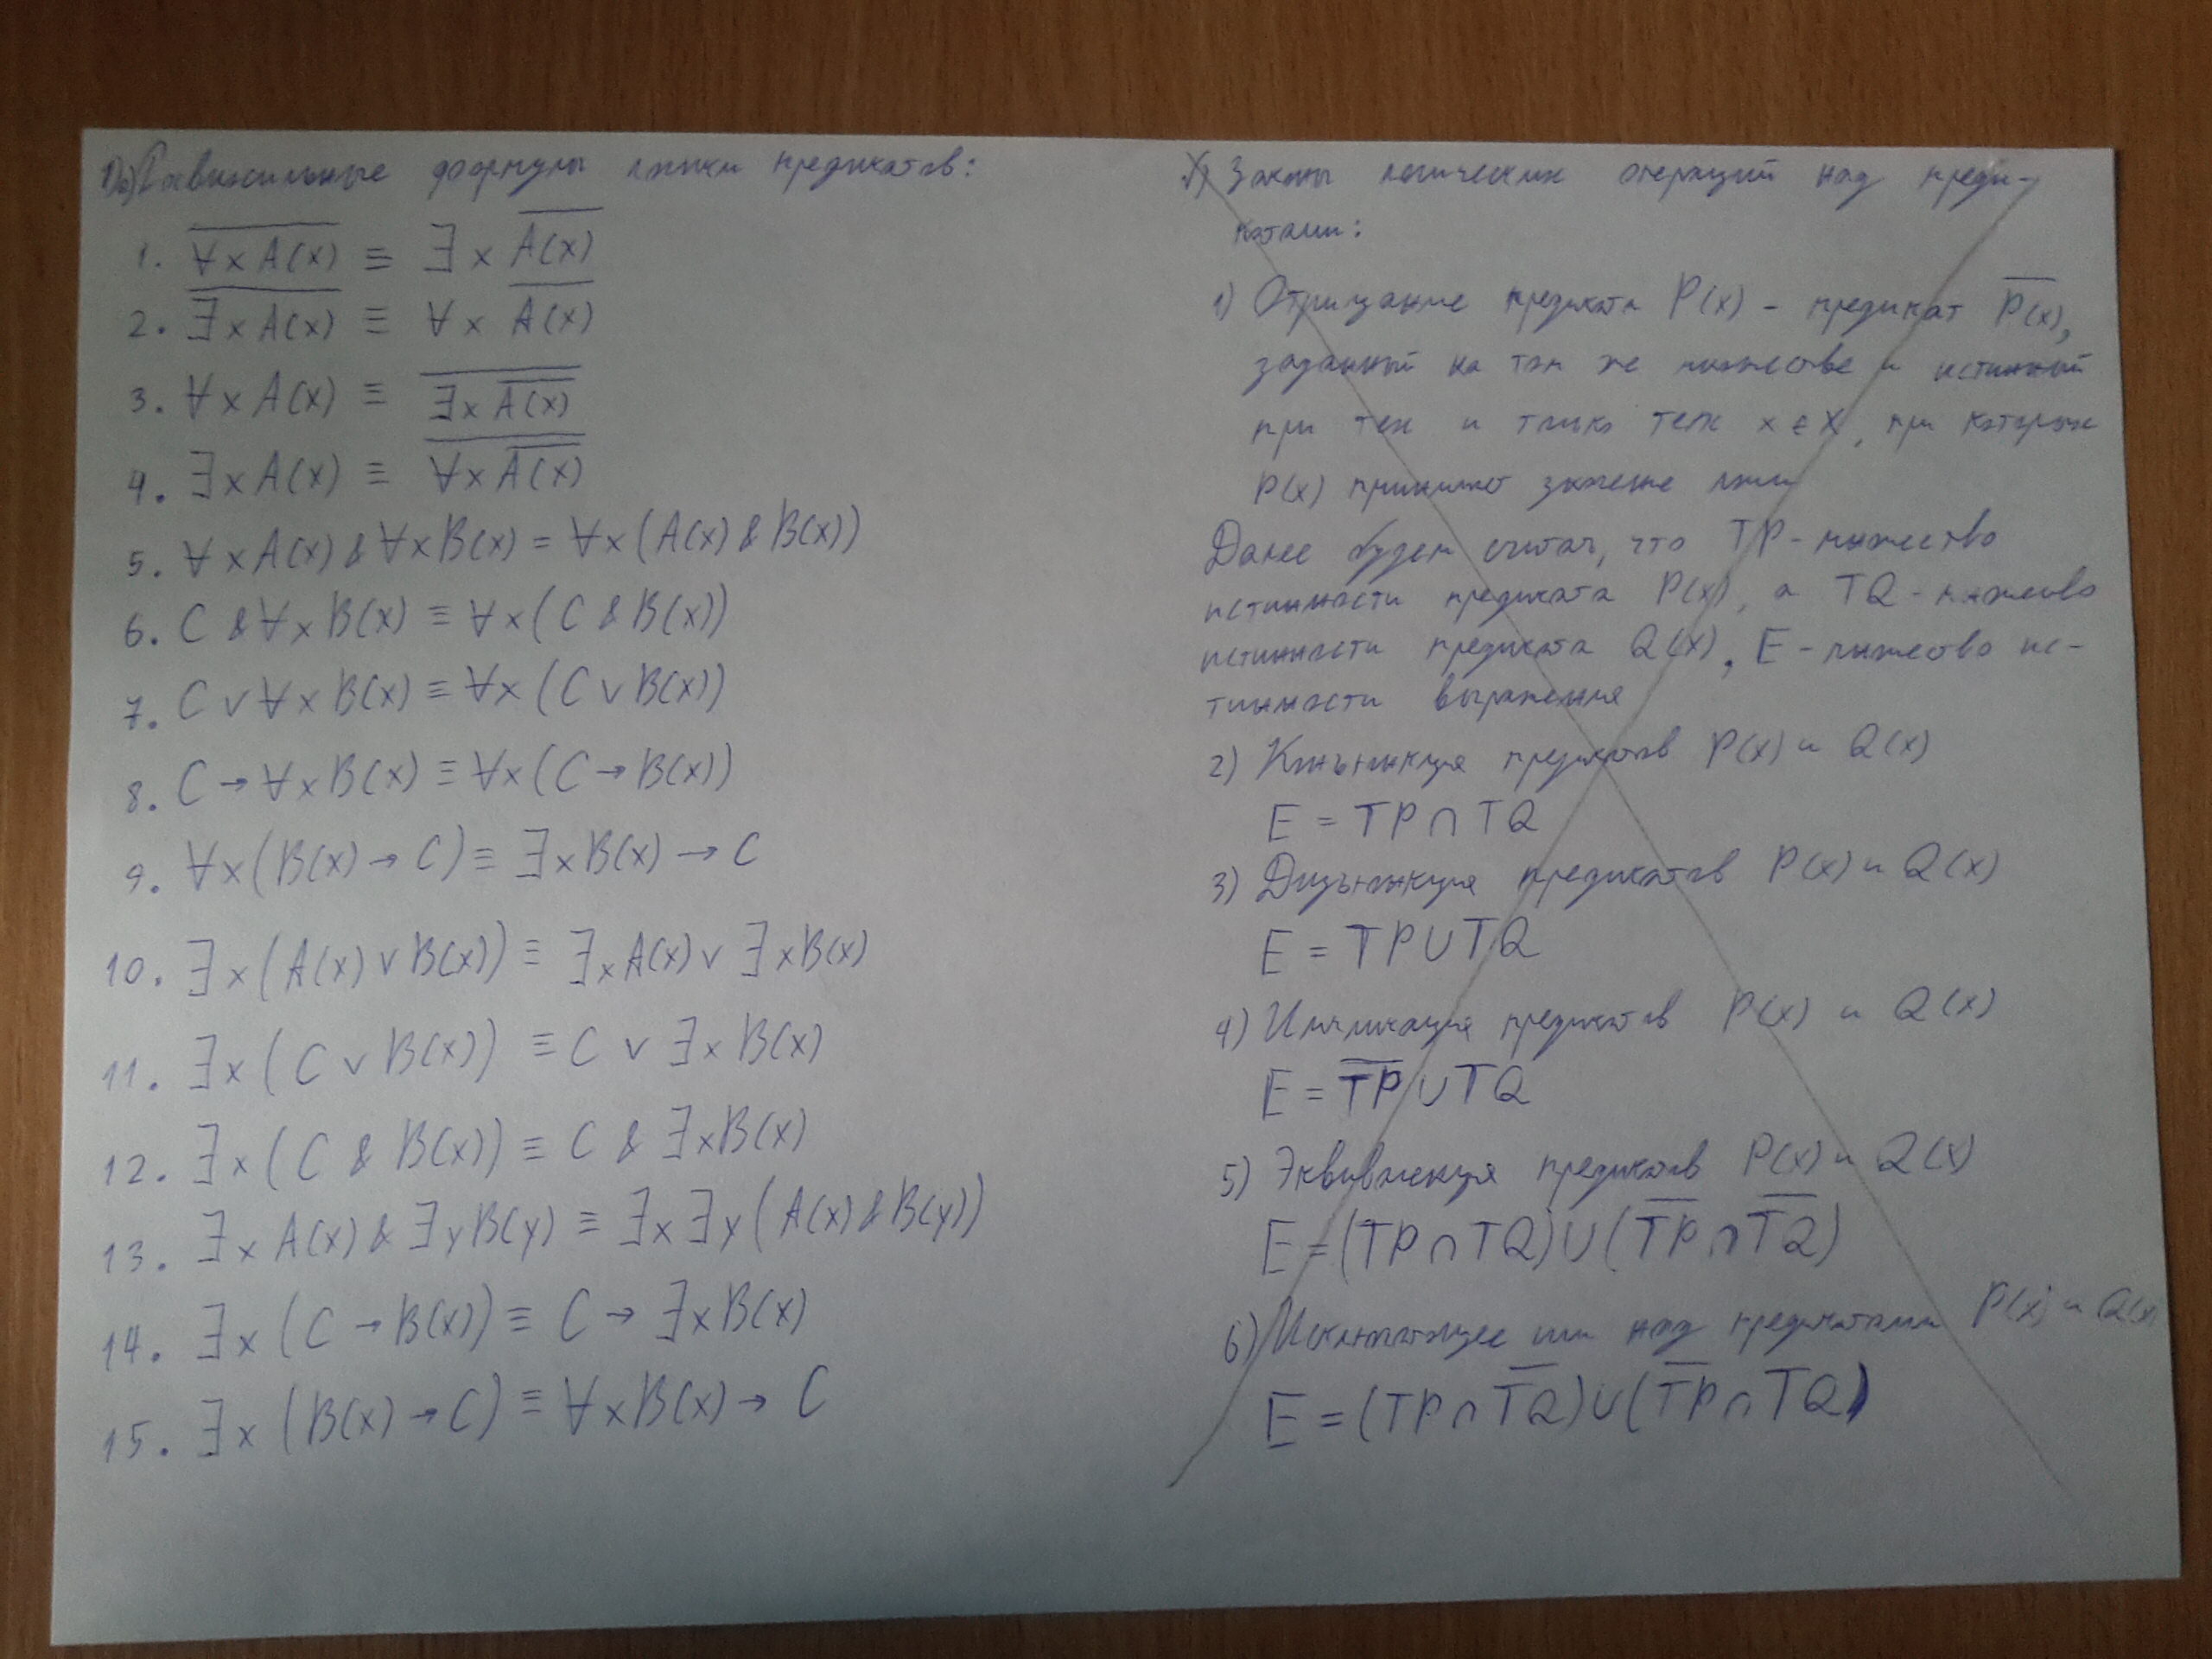 Равносильные формулы логики предикатов:
1. \overline{∀x A(x)} ≡ ∃x \overline{A(x)}
2. \overline{∃x A(x)} ≡ ∀x \overline{A(x)}
3. ∀x A(x) ≡ \overline{∃x \overline{A(x)}}
4. ∃x A(x) ≡ \overline{∀x \overline{A(x)}}
5. ∀x A(x) & ∀x B(x) = ∀x (A(x) & B(x))
6. C & ∀x B(x) ≡ ∀x (C & B(x))
7. C ∨ ∀x B(x) ≡ ∀x (C ∨ B(x))
8. C → ∀x B(x) ≡ ∀x (C → B(x))
9. ∀x (B(x) → C) ≡ ∃x B(x) → C
10. ∃x (A(x) ∨ B(x)) ≡ ∃x A(x) ∨ ∃x B(x)
11. ∃x (C ∨ B(x)) ≡ C ∨ ∃x B(x)
12. ∃x (C & B(x)) ≡ C & ∃x B(x)
13. ∃x A(x) & ∃y B(y) ≡ ∃x ∃y (A(x) & B(y))
14. ∃x (C → B(x)) ≡ C → ∃x B(x)
15. ∃x (B(x) → C) ≡ ∀x B(x) → C
Законы логических операций над преди-
катами:
1) Отрицание предиката P(x) - предикат \overline{P(x)},
заданный на том же множестве и истинный
при тех и только тех x ∈ X, при которых
P(x) принимает значение лжи
Далее будем считать, что TP - множество
истинности предиката P(x), а TQ - множество
истинности предиката Q(x), E - множество ис-
тинности выражения
2) Конъюнкция предикатов P(x) и Q(x)
E = TP ∩ TQ
3) Дизъюнкция предикатов P(x) и Q(x)
E = TP ∪ TQ
4) Импликация предикатов P(x) и Q(x)
E = \overline{TP} ∪ TQ
5) Эквиваленция предикатов P(x) и Q(x)
E = (TP ∩ TQ) ∪ (\overline{TP} ∩ \overline{TQ})
6) Исключающее или над предикатами P(x) и Q(x)
E = (TP ∩ \overline{TQ}) ∪ (\overline{TP} ∩ TQ)